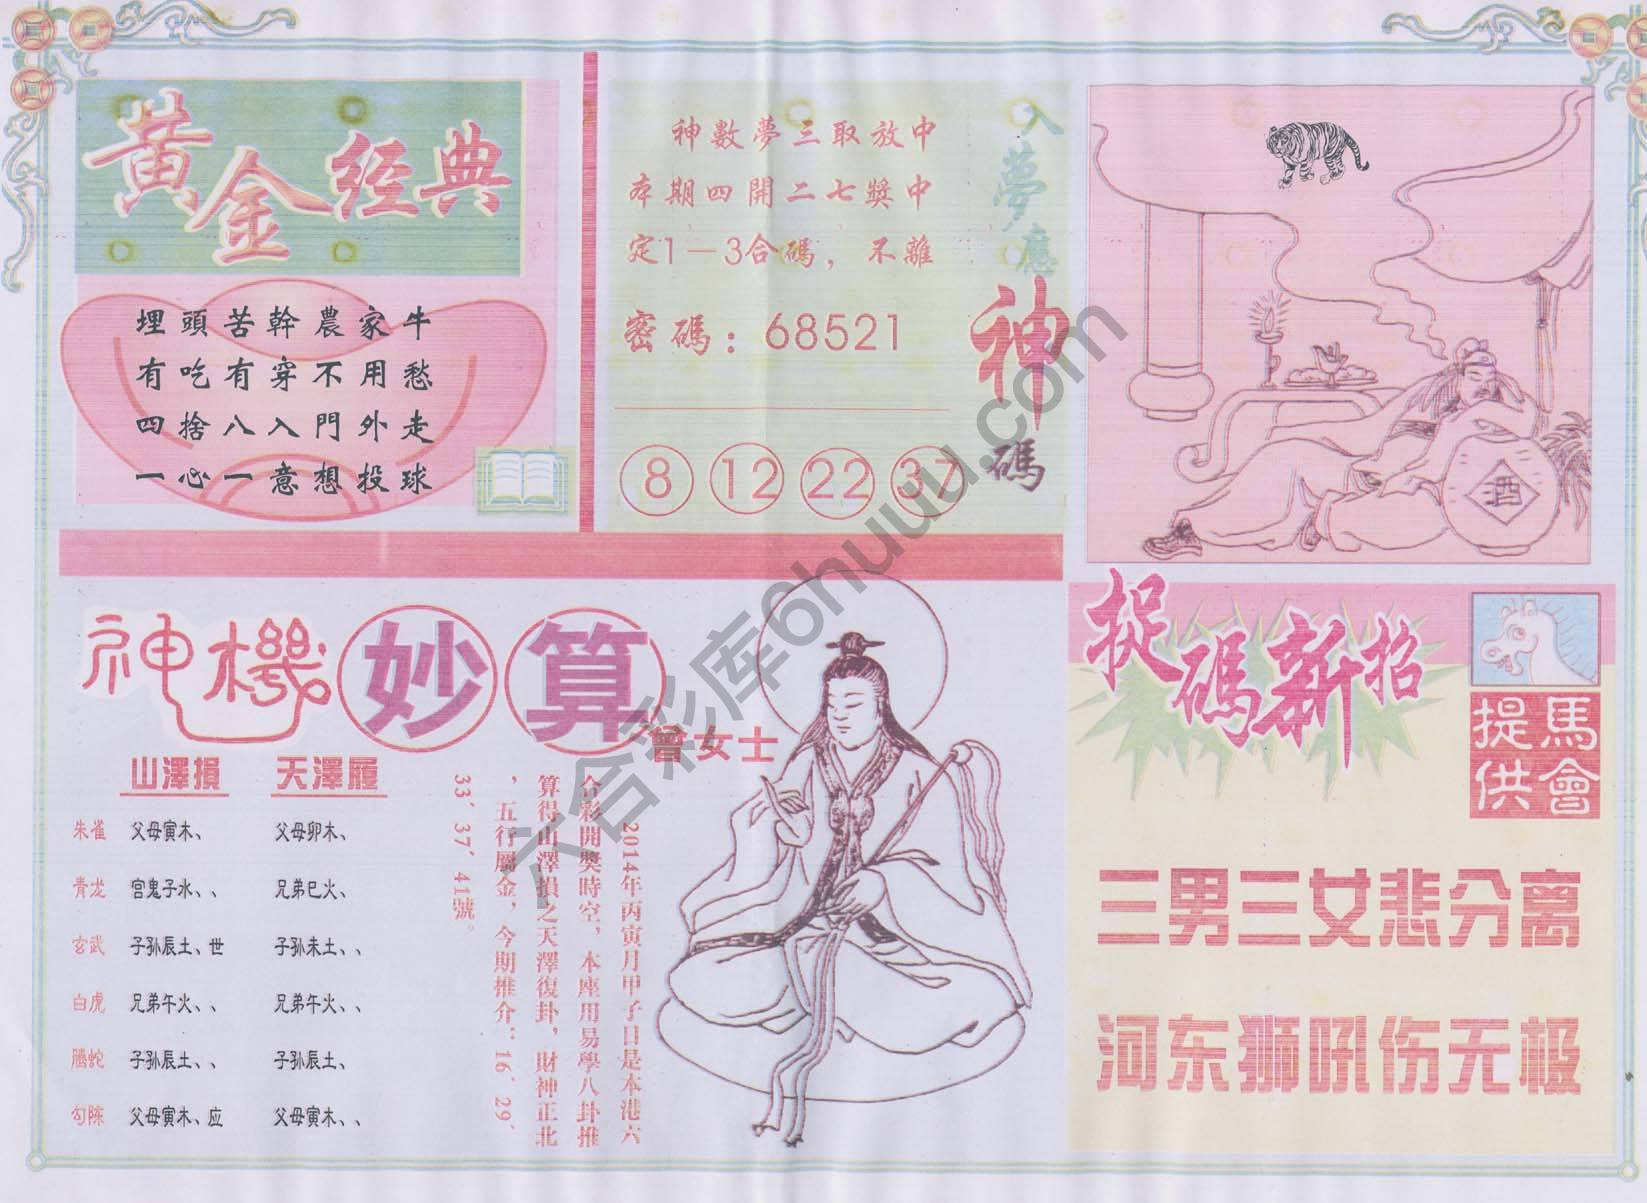 黃金經典
埋頭苦幹農家牛
有吃有穿不用愁
四捨八入門外走
一心一意想投球
入夢應神碼
神數夢三取放中
本期四開二七獎中
定1－3合碼，不離
密碼：68521
8 12 22 37
酒
神機妙算
曾女士
山澤損 天澤履
朱雀 父母寅木、 父母卯木、
青龙 官鬼子水、、 兄弟巳火、
玄武 子孙辰土、世 子孙未土、、
白虎 兄弟午火、、 兄弟午火、、
騰蛇 子孙辰土、、 子孙辰土、
勾陈 父母寅木、应 父母寅木、、
2014年丙寅月甲子日是本港六
合彩開獎時空，本座用易學八卦推
算得山澤損之天澤復卦，財神正北
、五行屬金，今期推介：16、29、
33、37、41號。
捉碼新招
馬會
提供
三男三女悲分离
河东狮吼伤无极
六合彩库6huuu.com